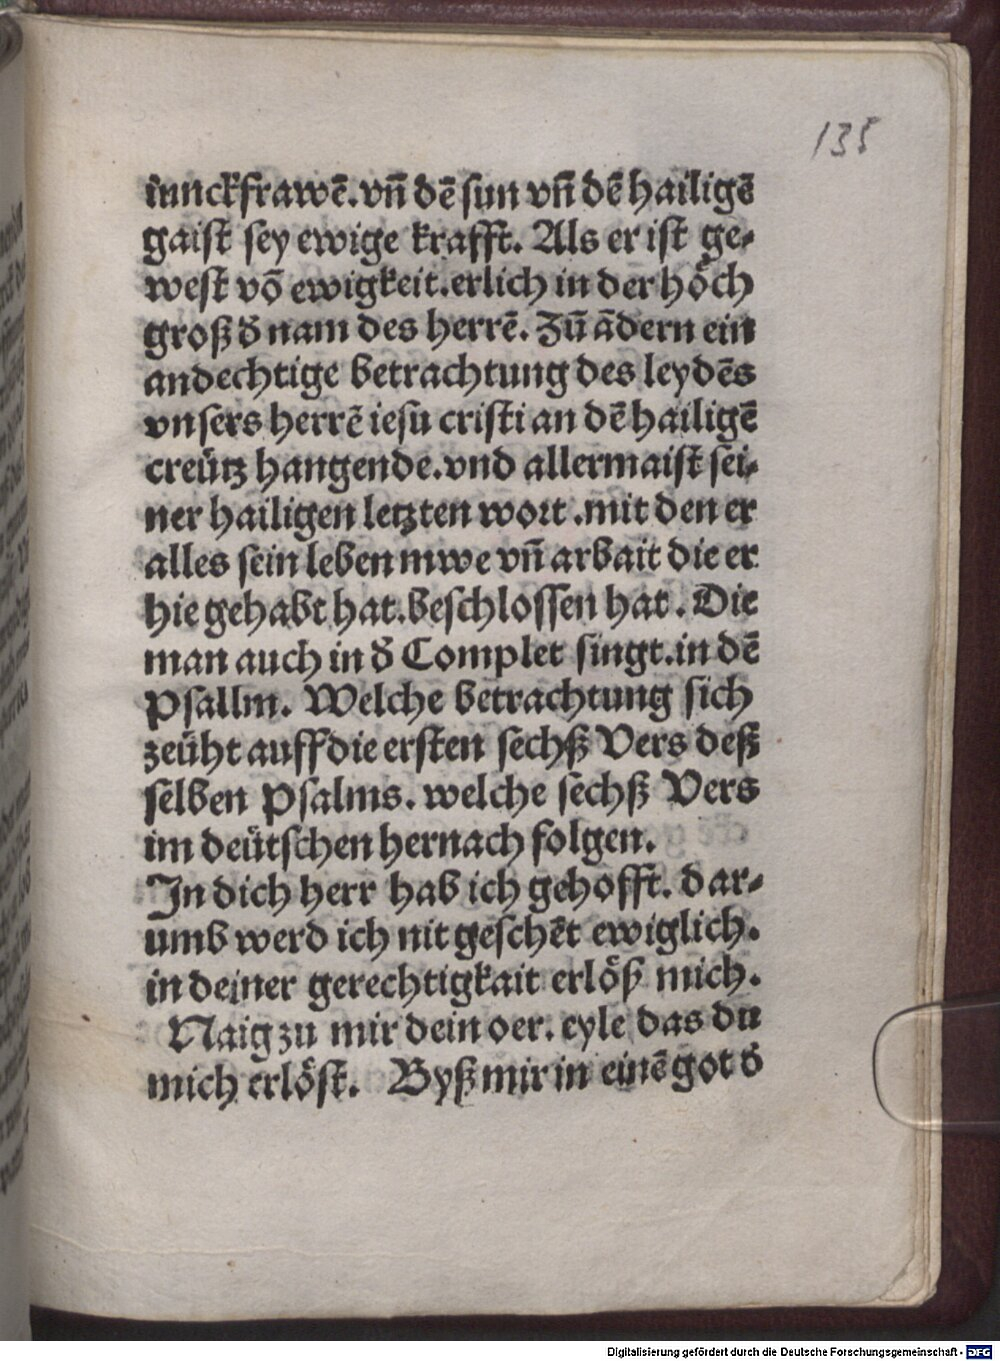 135
iunckfrawē. vñ dē sun vñ dē hailigē
gaist sey ewige krafft. Als er ist ge-
west vō ewigkeit. erlich in der höch
groß d̄ nam des herrē. Zū ādern ein
andechtige betrachtung des leydēs
vnsers herrē iesu cristi an dē hailigē
creütz hangende. vnd allermaist sei-
ner hailigen letzten wort. mit den er
alles sein leben mwe vñ arbait die er
hie gehabt hat. beschlossen hat. Die
man auch in d̄ Complet singt. in dē
Psallm. Welche betrachtung sich
zeüht auff die ersten sechß Vers deß
selben Psalms. welche sechß Vers
im deütschen hernach folgen.
In dich herr hab ich gehofft. dar-
umb werd ich nit geschēt ewiglich.
in deiner gerechtigkait erlöß mich.
Naig zu mir dein oer. eyle das du
mich erlöst. Byß mir in einē got d̄
Digitalisierung gefördert durch die Deutsche Forschungsgemeinschaft - DFG